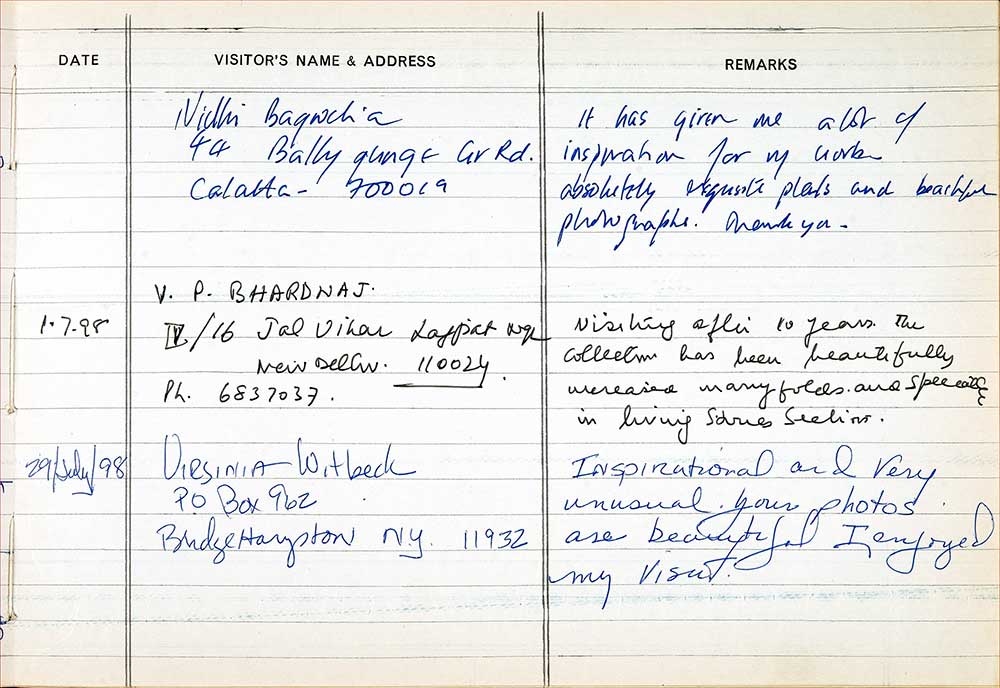 DATE VISITOR'S NAME & ADDRESS REMARKS
Nidhi
44 Ballygunge Cir Rd.
Calcutta - 700019
It has given me a lot of
inspiration for my work
absolutely exquisite plants and beautiful
photographs. Thank you -
V. P. BHARDWAJ.
1.7.98 IV/16 Jal Vihar Lajpat Ngr
New Delhi. 110024.
Ph. 6837037.
Visiting after 10 years. The
collection has been beautifully
increased many folds. and specially
in living Stones Section.
29/July/98 VIRGINIA Witbeck
PO Box 962
BridgeHampton N.Y. 11932
Inspirational and very
unusual. your photos
are beautiful I enjoyed
my visit.